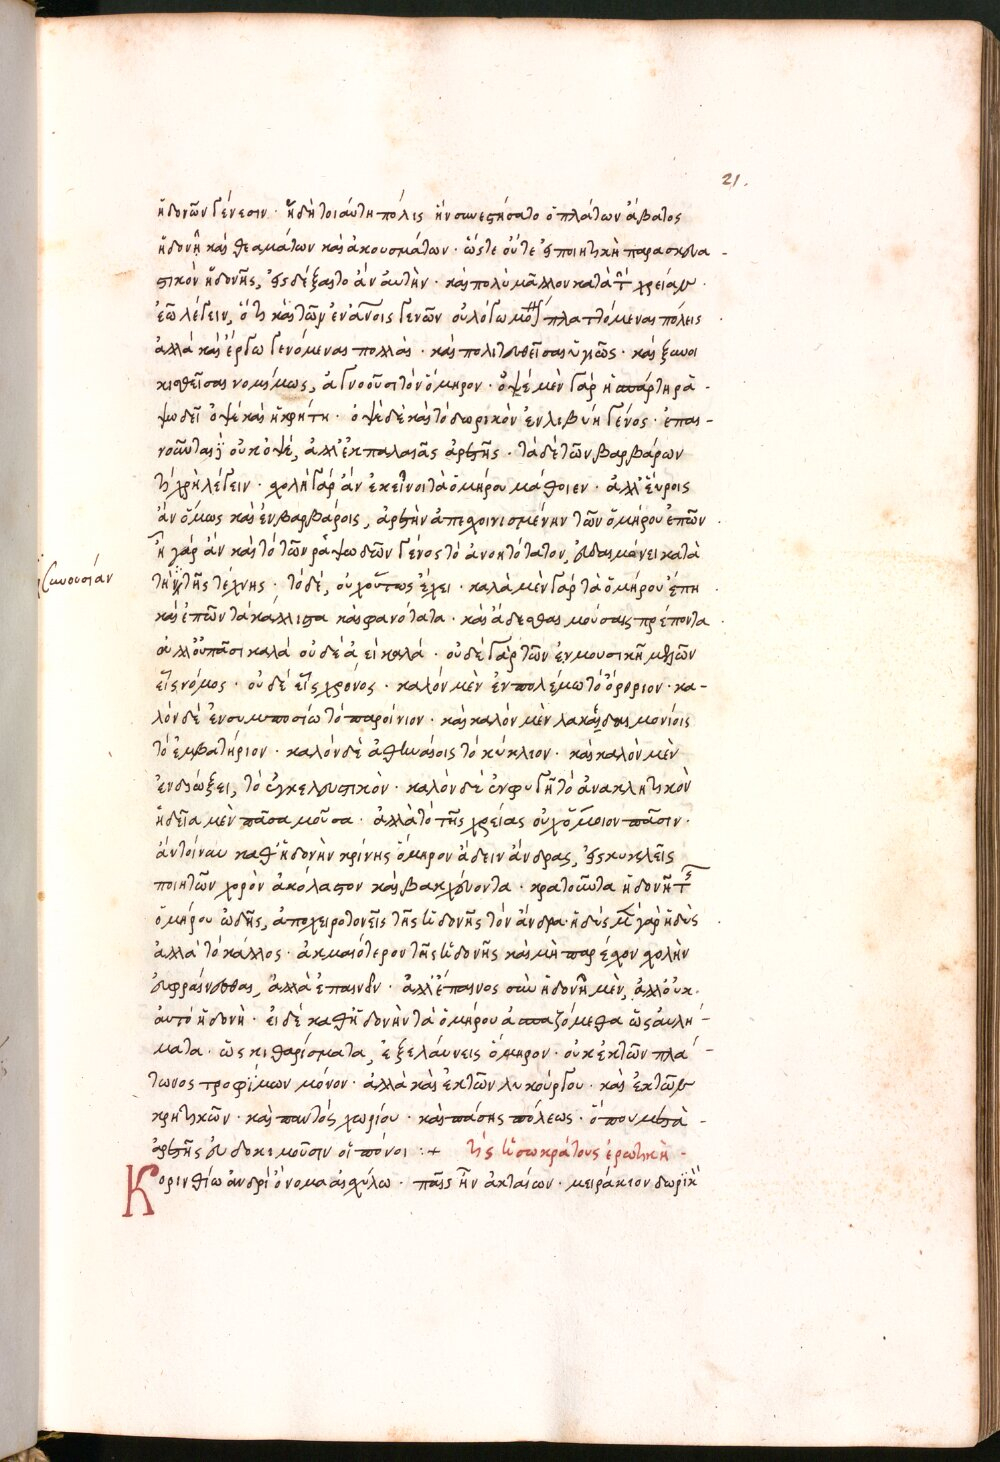 21.
ἡδονῶν γένεσιν · ἤδη τοιαύτη πόλις ἣν συνεστήσατο ὁ πλάτων ἄβατος
ἡδονῇ καὶ θεαμάτων καὶ ἀκουσμάτων · ὥστε οὔτε εἰ ποιητικὴ παρασκευα -
στικὸν ἡδονῆς, εἰσδέξαιτο ἂν αὐτὴν · καὶ πολὺ μᾶλλον κατὰ τ χρείαν ·
ἐῶ λέγειν, ὅτι καὶ τῶν ἐν ἀνοις γενῶν οὐ λόγω πλαττόμενας πόλεις
ἀλλὰ καὶ ἔργω γενόμενας πολλὰς · καὶ πολιτευθεῖσας ὑγιῶς · καὶ ξυνοι
κισθεῖσας νομίμως, ἀγνοοῦσι τὸν ὅμηρον · ὀψὲ μὲν γὰρ ἡ σπάρτη ρα -
ψωδεῖ ὀψὲ καὶ ἡ κρήτη · ὀψὲ δὲ καὶ τὸ δωρικὸν ἐν λιβύη γένος · ἐπαι -
νοῦνται οὐκ ὀψέ, ἀλλ' ἐκ παλαιᾶς ἀρετῆς · τὰ δὲ τῶν βαρβάρων
τί χρὴ λέγειν · σχολῆ γὰρ ἂν ἐκεῖνοι τὰ ὁμήρου μάθοιεν · ἀλλ' εὕροις
ἂν ὅμως καὶ ἐν βαρβάροις, ἀρετὴν ἀπεσχοινισμένην τῶν ὁμήρου ἐπῶν ·
ἦ γὰρ ἂν καὶ τὸ τῶν ραψωδῶν γένος τὸ ἀνοητότατον, εὐδαιμόνει κατὰ
τὴν τῆς τέχνης · τὸ δέ, οὐχ οὕτως ἔχει · καλὰ μὲν γὰρ τὰ ὁμήρου ἔπη
συνουσίαν
καὶ ἐπῶν τὰ κάλλιστα καὶ φανότατα · καὶ ἄδεσθαι μούσαις πρέποντα
ἀλλ' οὐ πᾶσι καλά οὐδὲ ἀεὶ καλά · οὐδὲ γὰρ τῶν ἐν μουσικῆ μελῶν
εἷς νόμος · οὐδὲ εἷς χρόνος · καλὸν μὲν ἐν πολέμω τὸ ὄρθριον · κα -
λὸν δὲ ἐν συμποσίω τὸ παροίνιον · καὶ καλὸν μὲν λακαιδαιμονίοις
τὸ ἐμβατήριον · καλὸν δὲ ἀθηναίοις τὸ κύκλιον · καὶ καλὸν μὲν
ἐν διώξει, τὸ ἐγκελευστικὸν · καλὸν δὲ ἐν φυγῆ τὸ ἀνακλητικὸν
ἡδεῖα μὲν πᾶσα μοῦσα · ἀλλὰ τὸ τῆς χρείας οὐχ ὅμοιον πᾶσιν ·
ἂν τοίνυν καθ' ἡδονὴν κρίνης ὅμηρον ἄδειν ἄνδρας, εἰσκυκλεῖς
ποιητῶν χορὸν ἀκόλαστον καὶ βακχεύοντα · κρατοῦντα ἡδονῆ τ
ὁμήρου ὠδῆς, ἀποχειροτονεῖς τῆς ἡδονῆς τὸν ἄνδρα · ἡδὺς μ γὰρ ἡδὺς
ἀλλὰ τὸ κάλλος · ἀκμαιότερον τῆς ἡδονῆς καὶ μὴ παρέχον σχολὴν
εὐφραίνεσθαι, ἀλλὰ ἐπαινεῖν · ἀλλ' ἔπαινος σὺν ἡδονῆ μὲν, ἀλλ' οὐκ
αὐτό ἡδονὴ · εἰ δὲ καθ' ἡδονὴν τὰ ὁμήρου ἀσπαζόμεθα ὡς αὐλή -
ματα · ὡς κιθαρίσματα, ἐξελαύνεις ὅμηρον · οὐκ ἐκ τῶν πλά -
τωνος τροφίμων μόνον · ἀλλὰ καὶ ἐκ τῶν λυκούργου · καὶ ἐκ τῶν
κρητικῶν · καὶ παντὸς χωρίου · καὶ πάσης πόλεως · ὅπου μετὰ -
ἀρετῆς εὐδοκιμοῦσιν οἱ πόνοι :+ τίς ἡ σωκράτους ἐρωτικὴ ·
Κορινθίω ἀνδρὶ ὄνομα αἰσχύλω · παῖς ἦν ἀκταίων · μειράκιον δωρικ